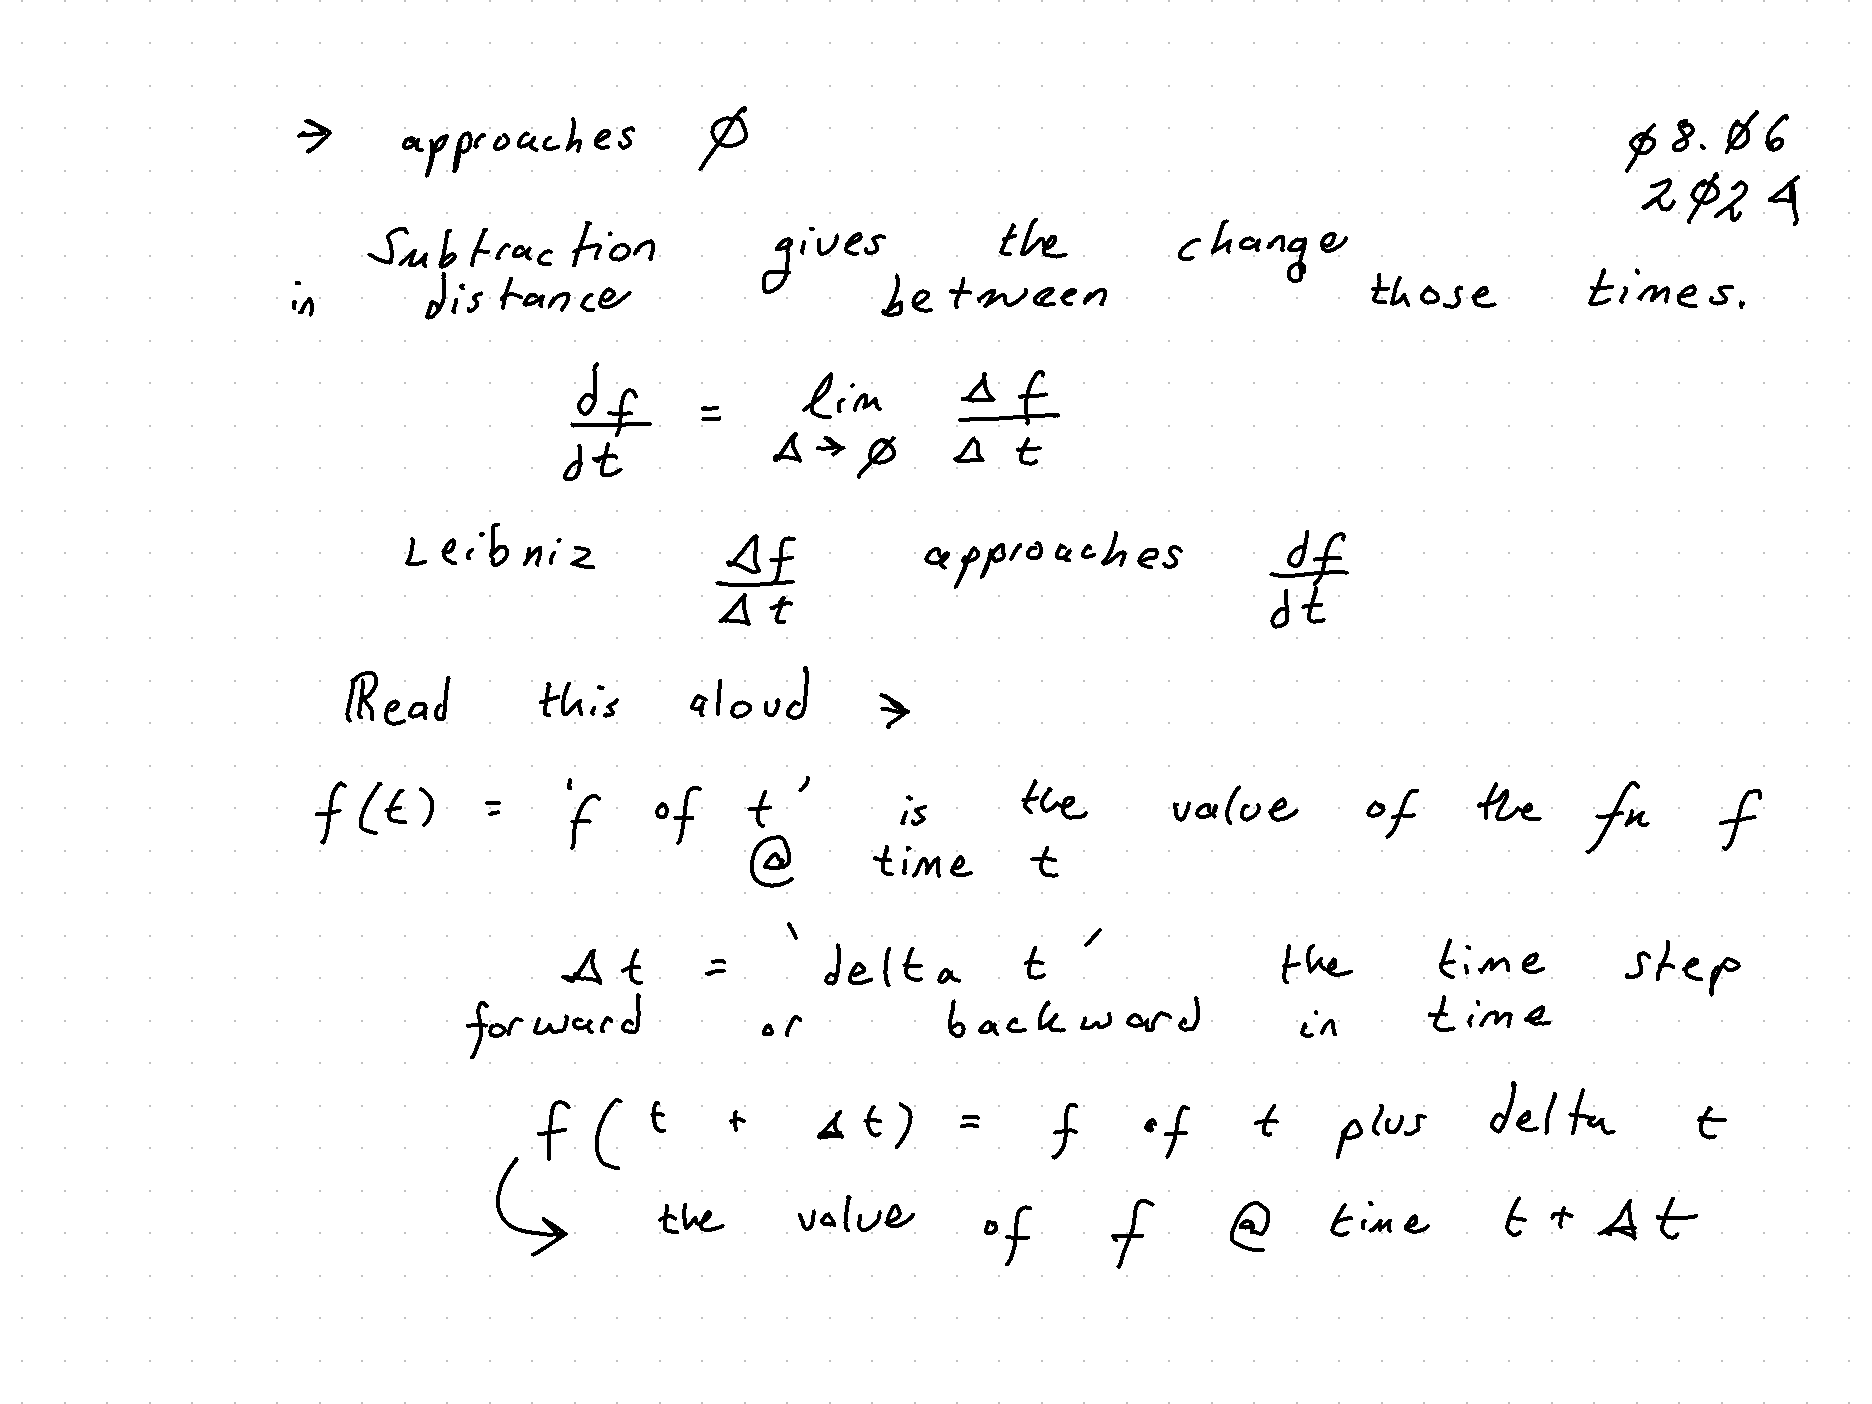 → approaches Ø
Ø8.Ø6
2Ø24
Subtraction gives the change
in distance between those times.
df/dt = lim Δ→Ø Δf/Δt
Leibniz Δf/Δt approaches df/dt
Read this aloud →
f(t) = 'f of t' is the value of the fn f
@ time t
Δt = 'delta t' the time step
forward or backward in time
f(t + Δt) = f of t plus delta t
the value of f @ time t + Δt